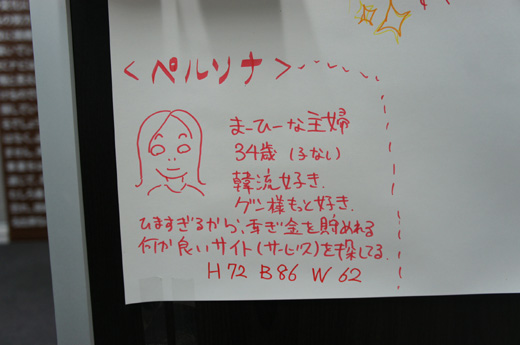 <ペルソナ>
まーひーな主婦
34歳 (子ない)
韓流好き.
グン様もっと好き.
ひますぎるから、季ぎ金を貯めれる
何か良いサイト(サービス)を探してる.
H72 B86 W62